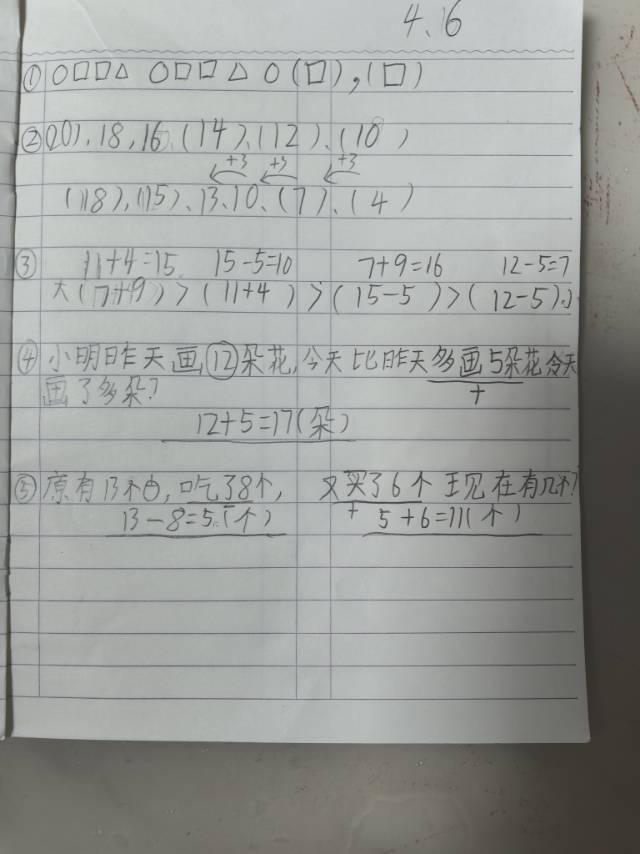 4.16
① ○□□△ ○□□△ ○(□),(□)
② (20),18,16,(14),(12),(10)
+3 +3 +3
(18),(15),13,10,(7),(4)
③ 11+4=15 15-5=10 7+9=16 12-5=7
大(7+9)>(11+4)>(15-5)>(12-5)小
④ 小明昨天画⑫朵花,今天比昨天多画5朵花,今天
+
画了多朵?
12+5=17(朵)
⑤ 原有13个白,吃了8个, 又买了6个 现在有几个?
13-8=5(个) + 5+6=11(个)